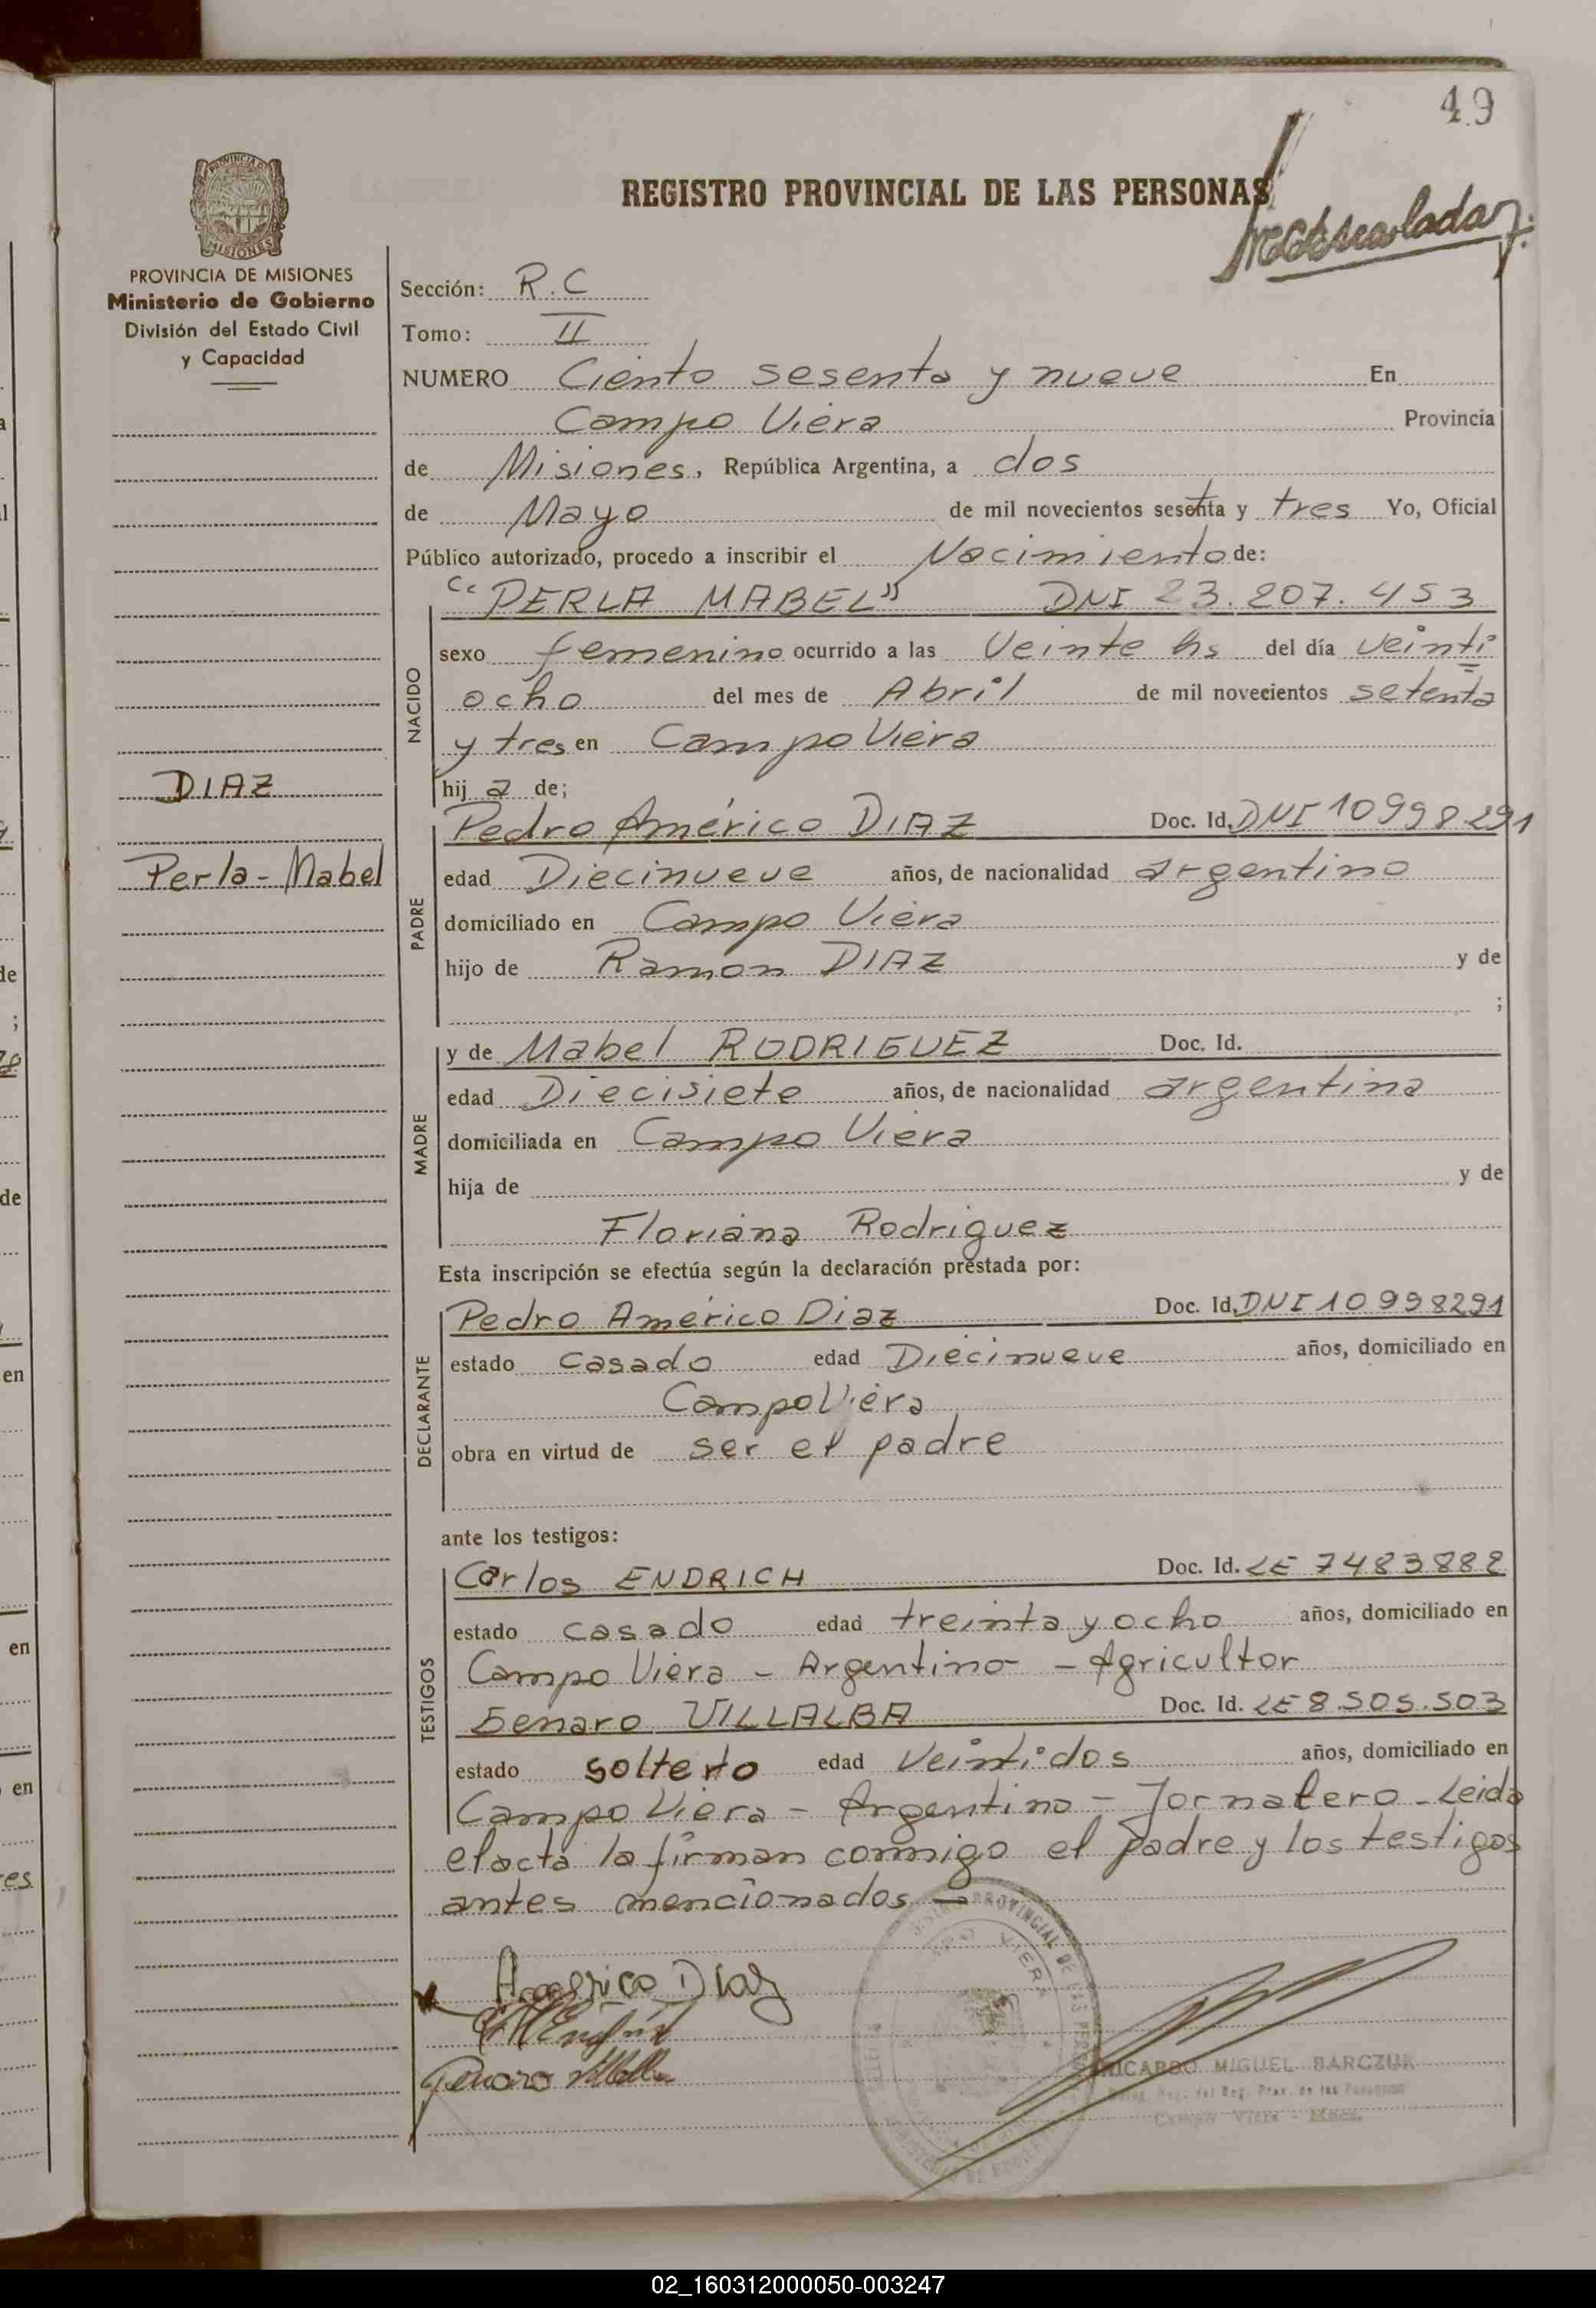 49
REGISTRO PROVINCIAL DE LAS PERSONAS
PROVINCIA DE MISIONES
Ministerio de Gobierno
División del Estado Civil
y Capacidad
Sección: R.C
Tomo: II
NUMERO Ciento sesenta y nueve En
Campo Viera Provincia
de Misiones, República Argentina, a dos
de Mayo de mil novecientos sesenta y tres Yo, Oficial
Público autorizado, procedo a inscribir el Nacimiento de:
"PERLA MABEL" DNI 23.207.453
NACIDO
sexo femenino ocurrido a las Veinte hs del día veinti
ocho del mes de Abril de mil novecientos setenta
y tres en Campo Viera
hija de;
DIAZ
Perla-Mabel
PADRE
Pedro Américo DIAZ Doc. Id. DNI 10998291
edad Diecinueve años, de nacionalidad argentino
domiciliado en Campo Viera
hijo de Ramon DIAZ y de
;
MADRE
y de Mabel RODRIGUEZ Doc. Id.
edad Diecisiete años, de nacionalidad argentina
domiciliada en Campo Viera
hija de y de
Floriana Rodriguez
Esta inscripción se efectúa según la declaración prestada por:
DECLARANTE
Pedro Américo Diaz Doc. Id. DNI 10998291
estado casado edad Diecinueve años, domiciliado en
Campo Viera
obra en virtud de ser el padre
ante los testigos:
TESTIGOS
Carlos ENDRICH Doc. Id. LE 7483882
estado casado edad treinta y ocho años, domiciliado en
Campo Viera - Argentino - Agricultor
Genaro VILLALBA Doc. Id. LE 8.505.503
estado soltero edad Veintidos años, domiciliado en
Campo Viera - Argentino - Jornalero - Leida
el acta la firman conmigo el padre y los testigos
antes mencionados -
Americo Diaz
Genaro Villalba
RICARDO MIGUEL BARCZUK
Campo Viera - Mnes.
02_160312000050-003247